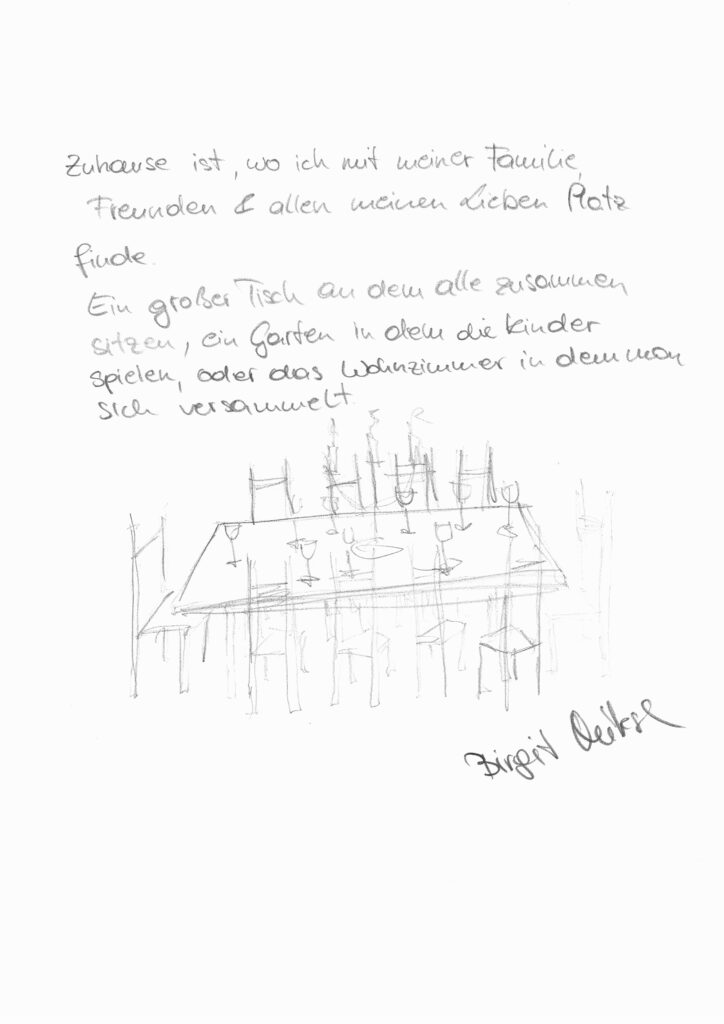 Zuhause ist, wo ich mit meiner Familie,
Freunden & allen meinen Lieben Platz
finde.
Ein großer Tisch an dem alle zusammen
sitzen, ein Garten in dem die Kinder
spielen, oder das Wohnzimmer in dem man
sich versammelt
Birgit